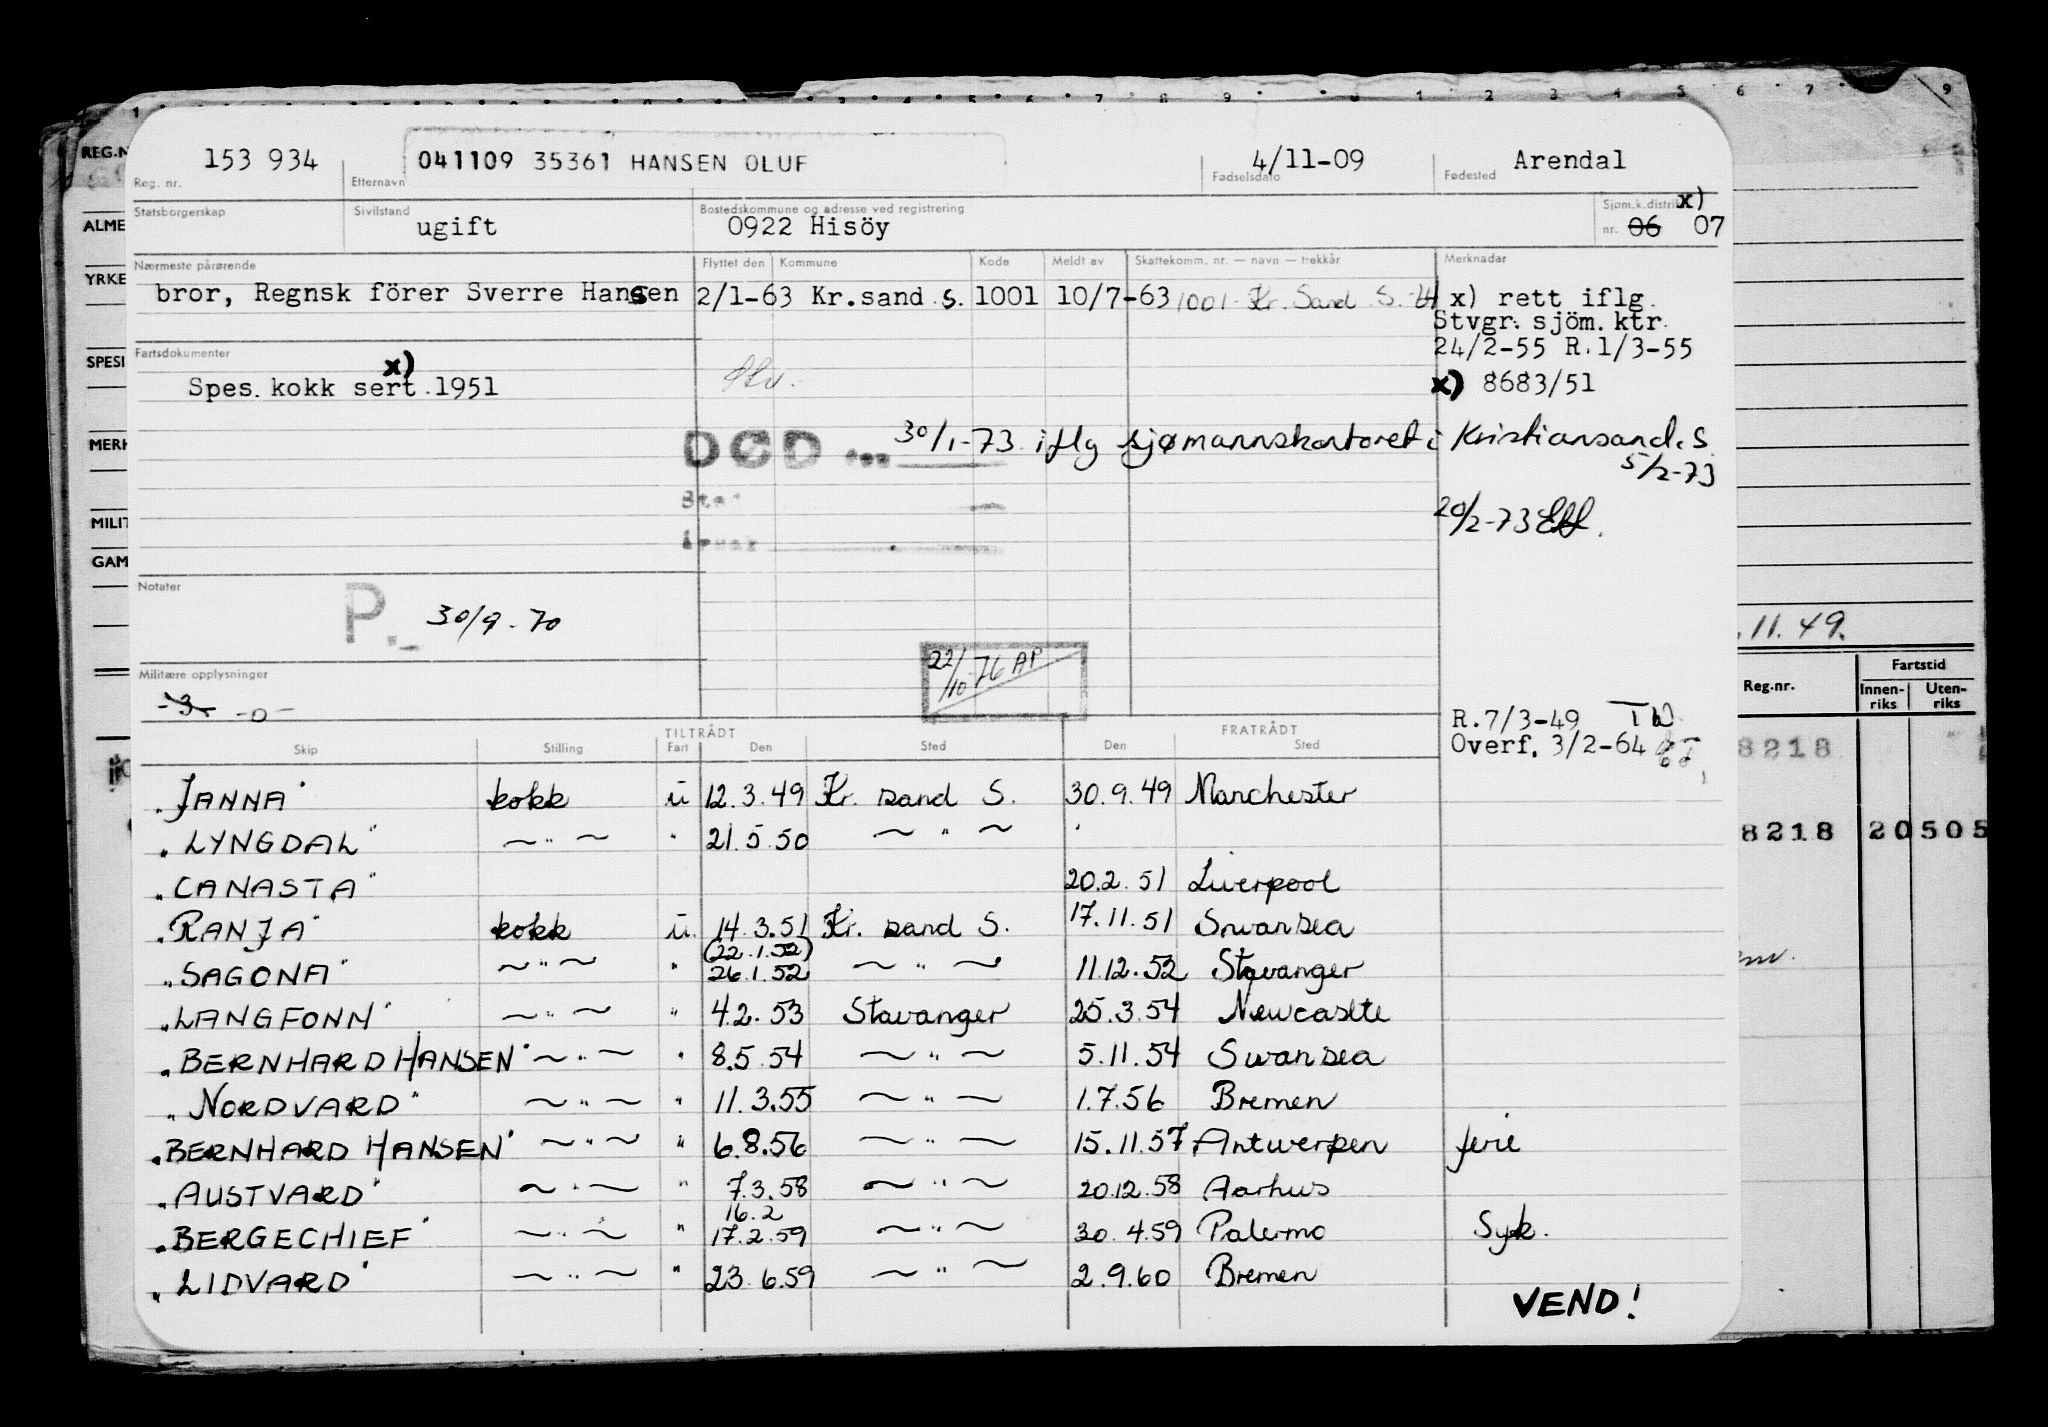 153 934 041109 35361 HANSEN OLUF 4/11-09 Arendal
Reg. nr. Etternavn Fødselsdato Fødested
Statsborgerskap Sivilstand Bostedskommune og adresse ved registrering Sjøm.k.distrikt x)
ugift 0922 Hisöy nr. 06 07
Nærmeste pårørende Flyttet den Kommune Kode Meldt av Skattekomm. nr. — navn — trekkår Merknader
bror, Regnsk förer Sverre Hansen 2/1-63 Kr.sand S. 1001 10/7-63 1001 Kr. Sand S. x) rett iflg.
Stvgr. sjöm. ktr.
24/2-55 R.1/3-55
Fartsdokumenter
x)
Spes. kokk sert.1951 x) 8683/51
DØD 30/1-73 iflg sjømannskontoret i Kristiansand. S
5/2-73
20/2-73
Årsak
Notater
P. 30/9-70
22/10-76 AP
Militære opplysninger
-3- -0-
R.7/3-49 TW
Overf. 3/2-64
TILTRÅDT FRATRÅDT
Skip Stilling Fart Den Sted Den Sted
"JANNA" kokk u 12.3.49 Kr. sand S. 30.9.49 Manchester
"LYNGDAL" ~"~ " 21.5.50 ~"~ "
"CANASTA" 20.2.51 Liverpool
"RANJA" kokk u. 14.3.51 Kr. sand S. 17.11.51 Swansea
(22.1.52)
"SAGONA" ~"~ " 26.1.52 ~"~ 11.12.52 Stavanger
"LANGFONN" ~"~ " 4.2.53 Stavanger 25.3.54 Newcastle
"BERNHARD HANSEN" ~"~ " 8.5.54 ~"~ 5.11.54 Swansea
"NORDVARD" ~"~ " 11.3.55 ~"~ 1.7.56 Bremen
"BERNHARD HANSEN" ~"~ " 6.8.56 ~"~ 15.11.57 Antwerpen ferie
"AUSTVARD" ~"~ " 7.3.58 ~"~ 20.12.58 Aarhus
16.2
"BERGECHIEF" ~"~ " 17.2.59 ~"~ 30.4.59 Palermo Syk.
"LIDVARD" ~"~ " 23.6.59 ~"~ 2.9.60 Bremen
VEND!
REG.N
ALME
YRKE
SPESI
MERK
MILIT
GAM
.11.49.
Fartstid
Reg.nr. Innen-riks Uten-riks
8218
8218 20505